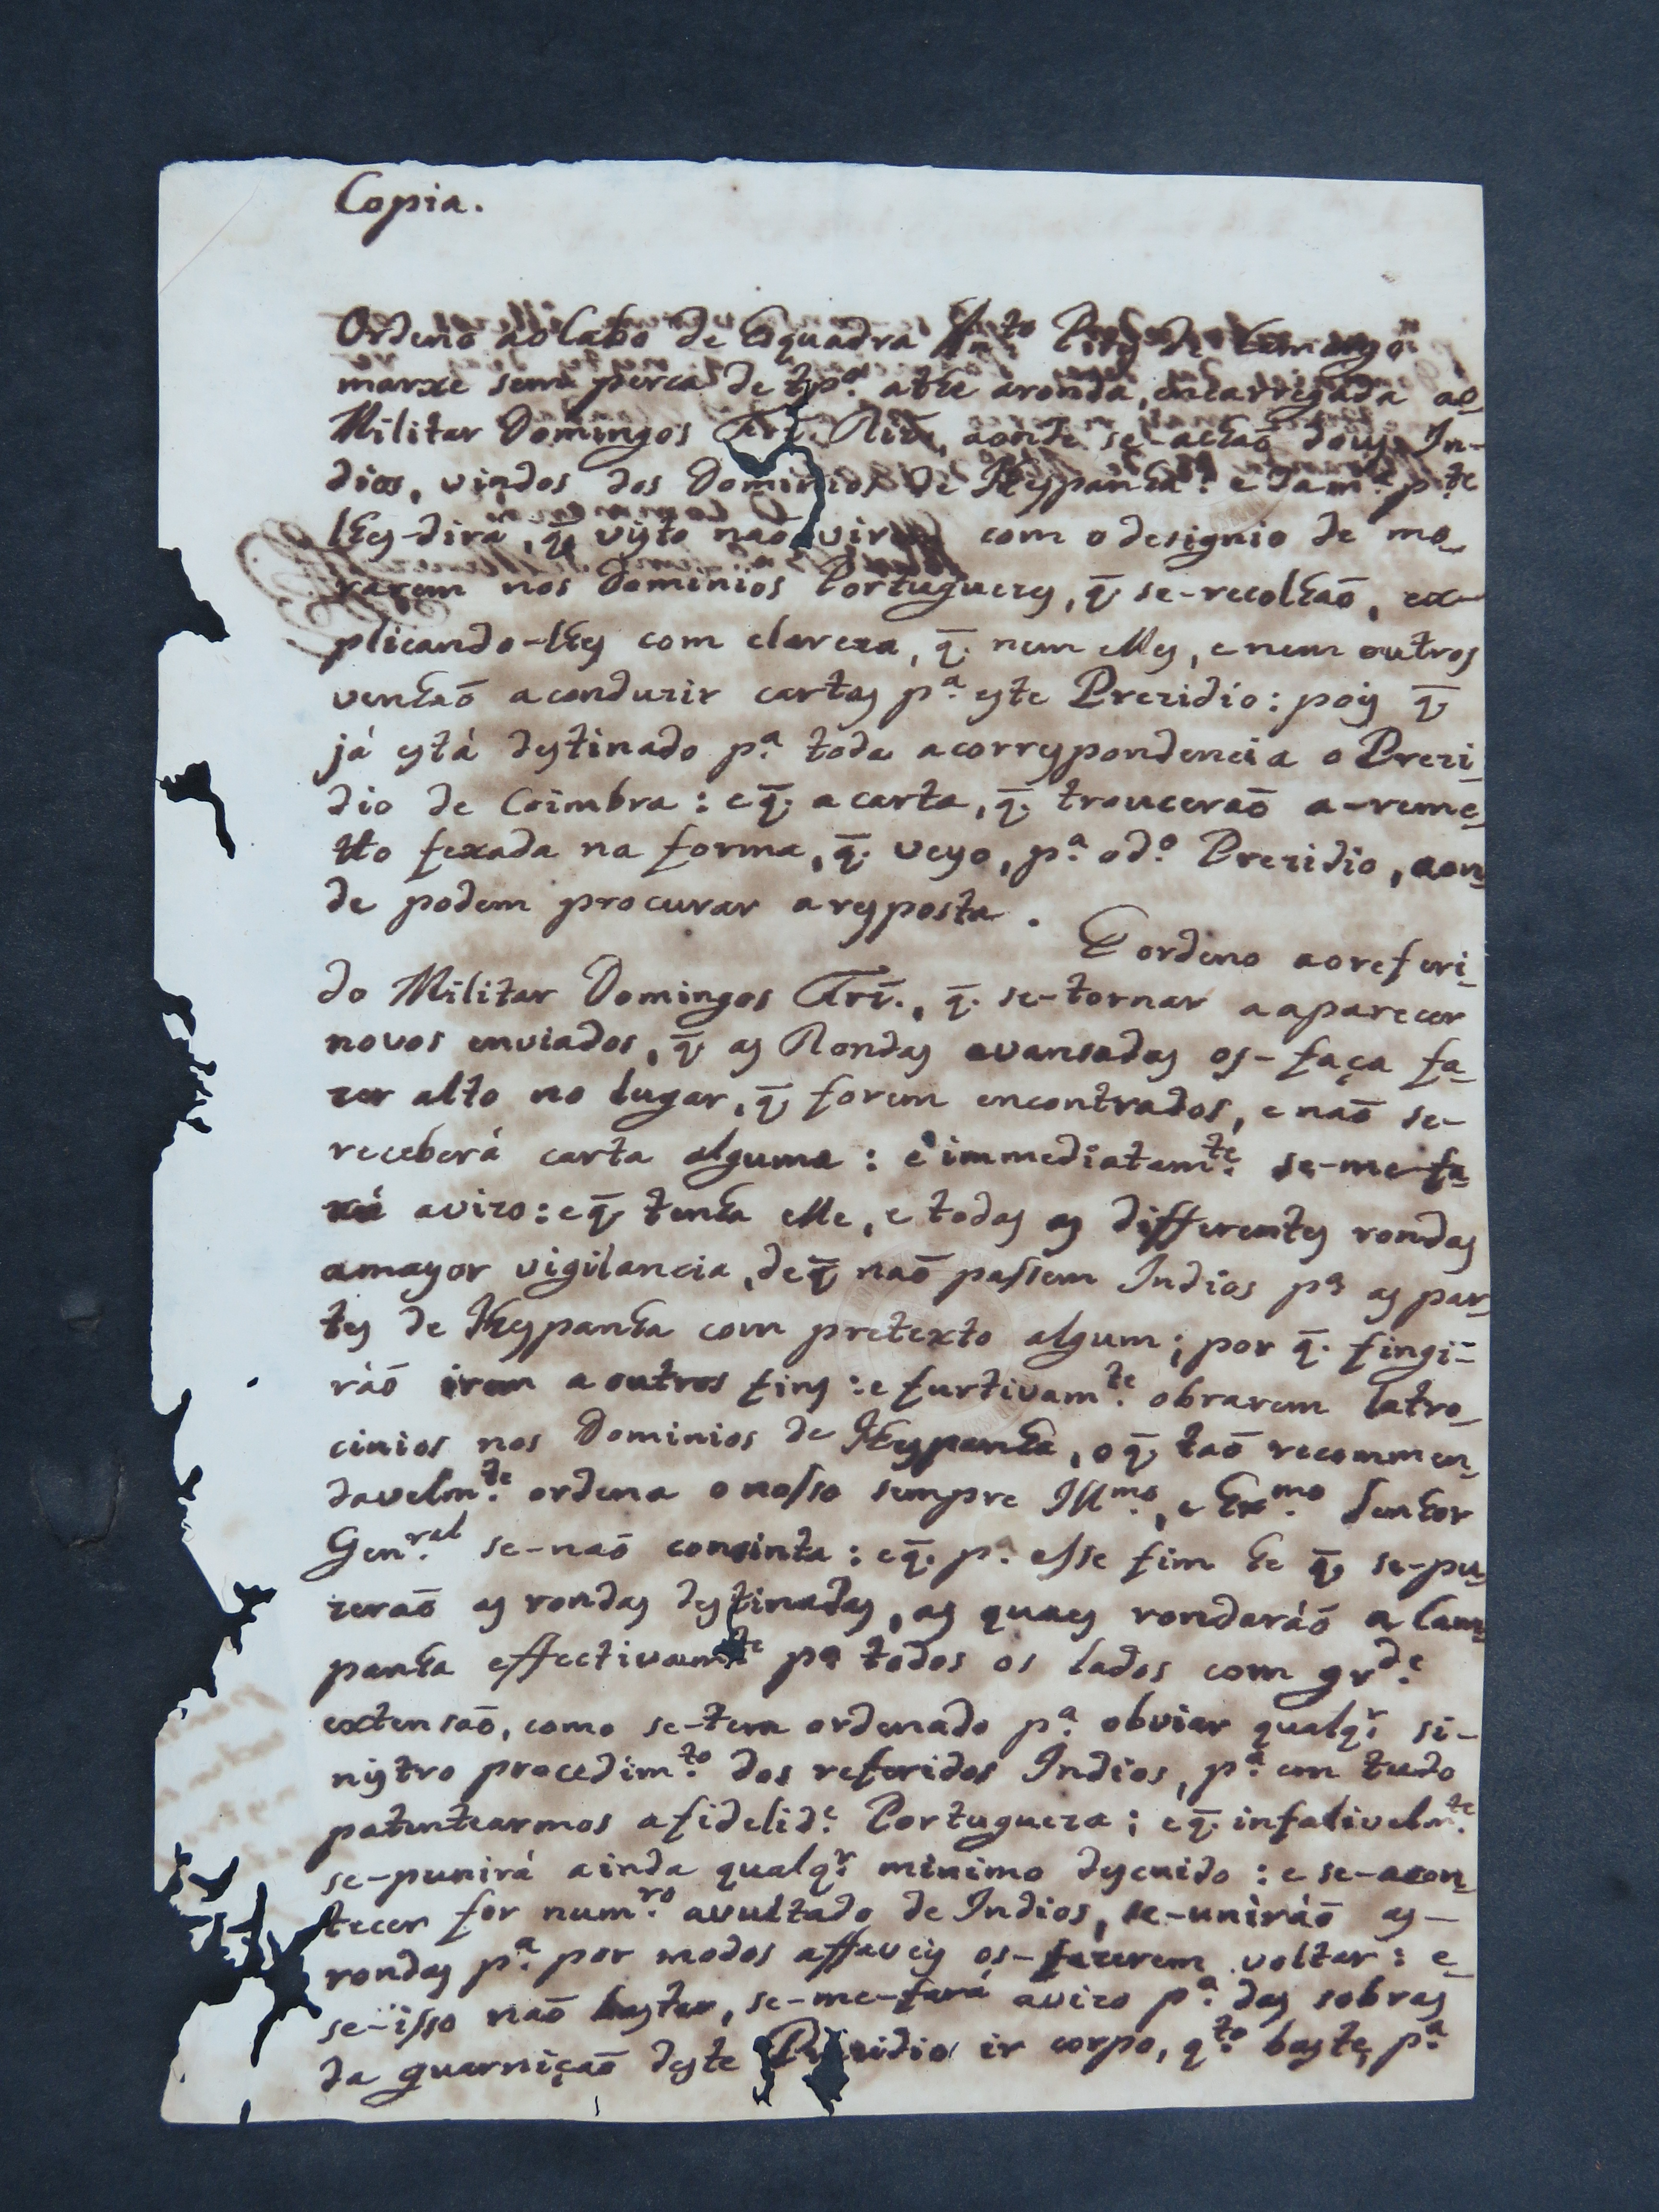 Copia.
Ordeno ao Cabo de Esquadra Ant.to Pirz de Camargo
marxe sem perca de tp.º athe a ronda, encarregada ao
Militar Domingos Frź. Ribr.º, aonde se-achaõ dous In-
dios, vindos dos Dominios de Hespanha: e dam.ª p.te
lhes-dirá, q̃ visto naõ virem com o designio de mo-
rarem nos Dominios Portuguezes, q̃ se-recolhaõ, ex-
plicando-lhes com clareza, q̃. nem elles, e nem outros
venhaõ a conduzir cartas p.ª este Prezidio: pois q̃
já está destinado p.ª toda a correspondencia o Prezi-
dio de Coimbra: e q̃. a carta, q̃. trouceraõ a-reme-
tto fexada na forma, q̃. veyo, p.ª o d.º Prezidio, aon-
de podem procurar a resposta.
E ordeno ao referi-
do Militar Domingos Frź., q̃. se-tornar a aparecer
novos enviados, q̃ as Rondas avansadas os-faça fa-
zer alto no lugar, q̃ forem encontrados, e naõ se-
receberá carta alguma: e immediatam.te se-me-fa-
rá avizo: e q̃ tenha elle, e todas as differentes rondas
a mayor vigilancia, de q̃ naõ passem Indios p.ª as par-
tes de Hespanha com pretexto algum; por q̃. fingi-
ráõ irem a outros fins: e furtivam.te obrarem latro-
cinios nos Dominios de Hespanha, o q̃. taõ recommen-
davelm.te ordena o nosso sempre Ill.mo, e Ex.mo Senhor
Gen.ral se-naõ consinta: e q̃. p.ª esse fim he q̃ se-pu-
zeraõ as rondas destinadas, as quaes rondaráõ a Cam-
panha effectivam.te p.ª todos os lados com gr.de
extensaõ, como se-tem ordenado p.ª obviar qualq.r si-
nistro procedim.to dos referidos Indios, p.ª em tudo
patentearmos a fidelid.e Portugueza; e q̃. infalivelm.te
se-punirá ainda qualq.r minimo descuido: e se-acon-
tecer for num.ro avultado de Indios, se-uniráõ as-
rondas p.ª por modos affaveis os-fazerem voltar: e-
se-isso naõ bastar, se-me-fará avizo p.ª das sobras
da guarniçaõ deste Prezidio ir corpo, q.to baste, p.ª